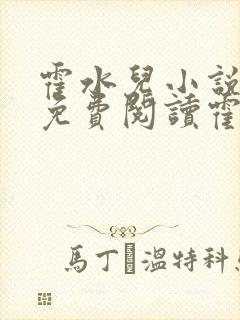 霍水兒小説
免費閱讀霍
馬丁 溫特科